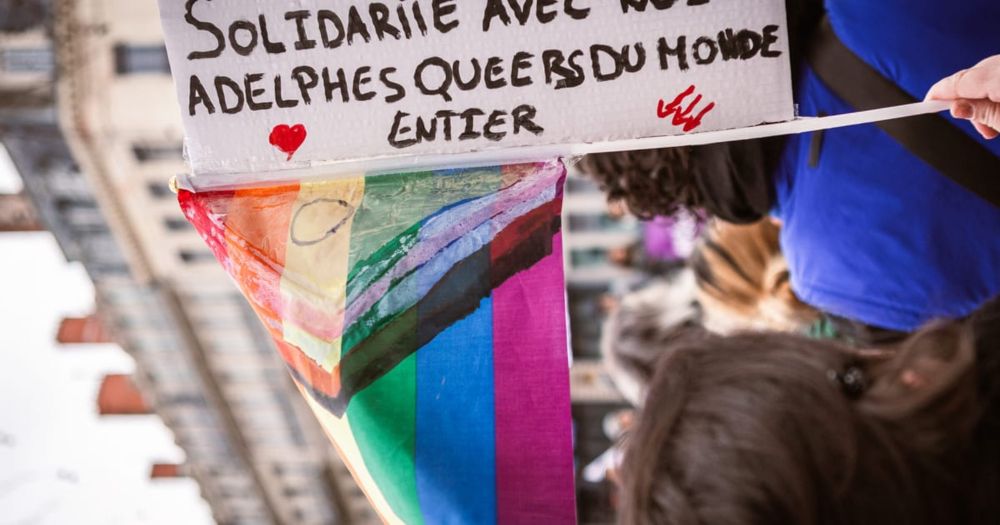 SOLIDARITE AVEC NOS
ADELPHES QUEERS DU MONDE
ENTIER